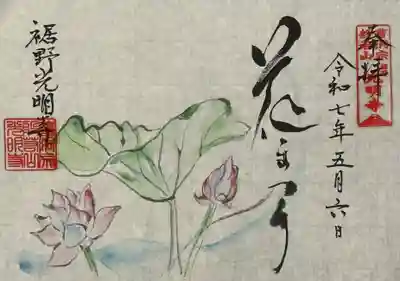 奉拝
令和七年五月六日
花まつり
裾野光明寺